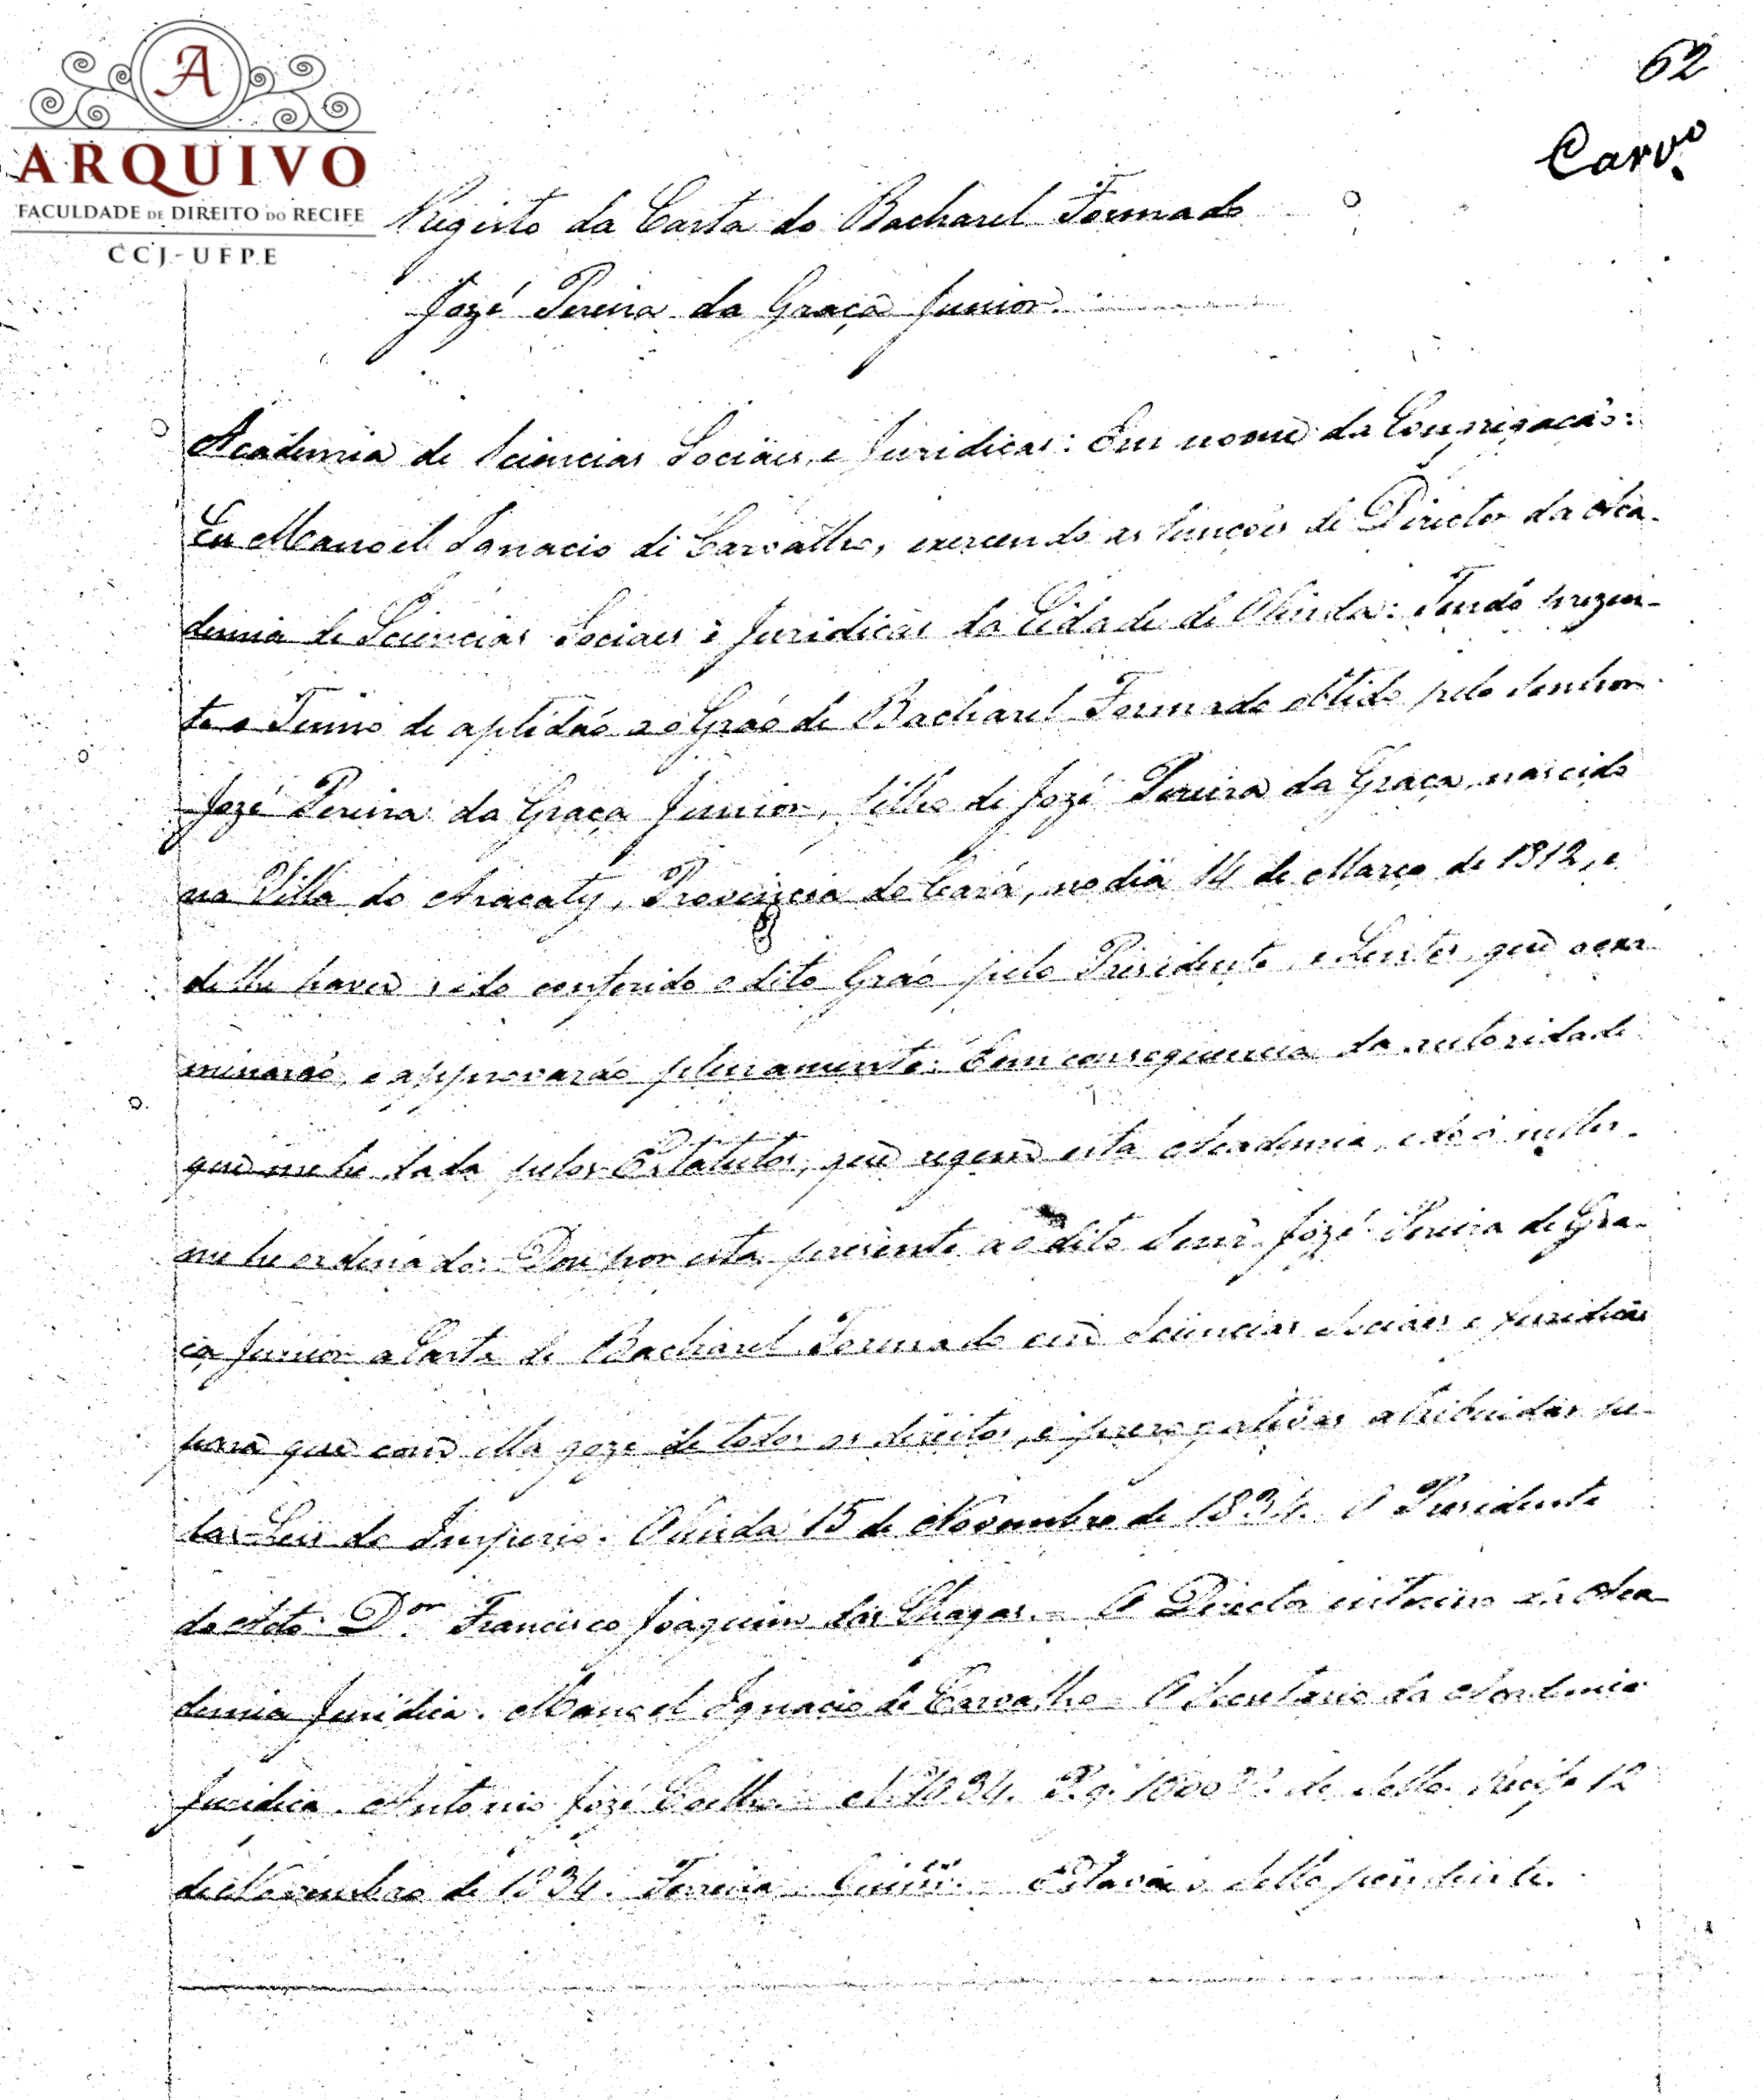 62
Carvº
A
ARQUIVO
FACULDADE DE DIREITO DO RECIFE
CCJ-UFPE
Registo da Carta do Bacharel Formado
Jozé Pereira da Graça Junior.
Academia de Sciencias Sociaes, e Juridicas: Em nome da Congregação:
Eu Manoel Ignacio de Carvalho, exercendo as funções de Director da Aca-
demia de Sciencias Sociaes e Juridicas da Cidade de Olinda: Tendo prezen-
te o Termo de aptidão ao Gráo de Bacharel Formado obtido pelo Senhor
Jozé Pereira da Graça Junior, filho de Jozé Pereira da Graça, nascido
na Villa do Aracaty, Provincia do Ceará, no dia 14 de Março de 1812, e
de lhe haver sido conferido o dito Gráo pelo Presidente, e Lentes, que o exa-
minarão, e approvarão plenamente: Em consequencia da autoridade
que me he dada pelos Estatutos, que regem esta Academia, e do que nelles
me he ordenado: Dou por esta presente ao dito Senr. Jozé Pereira da Gra-
ça Junior a Carta de Bacharel Formado em Sciencias Sociaes e Juridicas
para que com ella goze de todos os direitos, e prerogativas atribuidas pe-
las Leis do Imperio. Olinda 15 de Novembro de 1834. O Presidente
do Acto Dor Francisco Joaquim das Chagas. = O Director interino da Aca-
demia Juridica. Manoel Ignacio de Carvalho = O Secretario da Academia
Juridica. Antonio Jozé Coelho. = Pg. de Sello. Recife 12
de Novembro de 1834. Ferreira. Estava o Sello pendente.